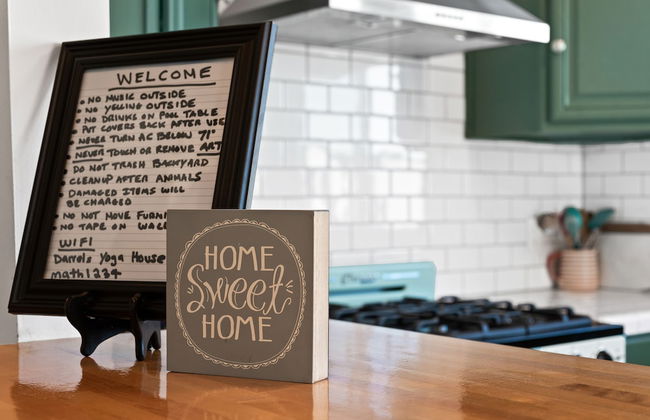 WELCOME
• NO MUSIC OUTSIDE
• NO YELLING OUTSIDE
• NO DRINKS ON POOL TABLE
PUT COVERS BACK AFTER USE
• NEVER TURN AC BELOW 71°
• NEVER TOUCH OR REMOVE ART
• DO NOT TRASH BACKYARD
• CLEANUP AFTER ANIMALS
• DAMAGED ITEMS WILL
BE CHARGED
• NO NOT MOVE
• NO TAPE ON
WIFI
Darrels Yoga House
math1234
HOME
Sweet
HOME